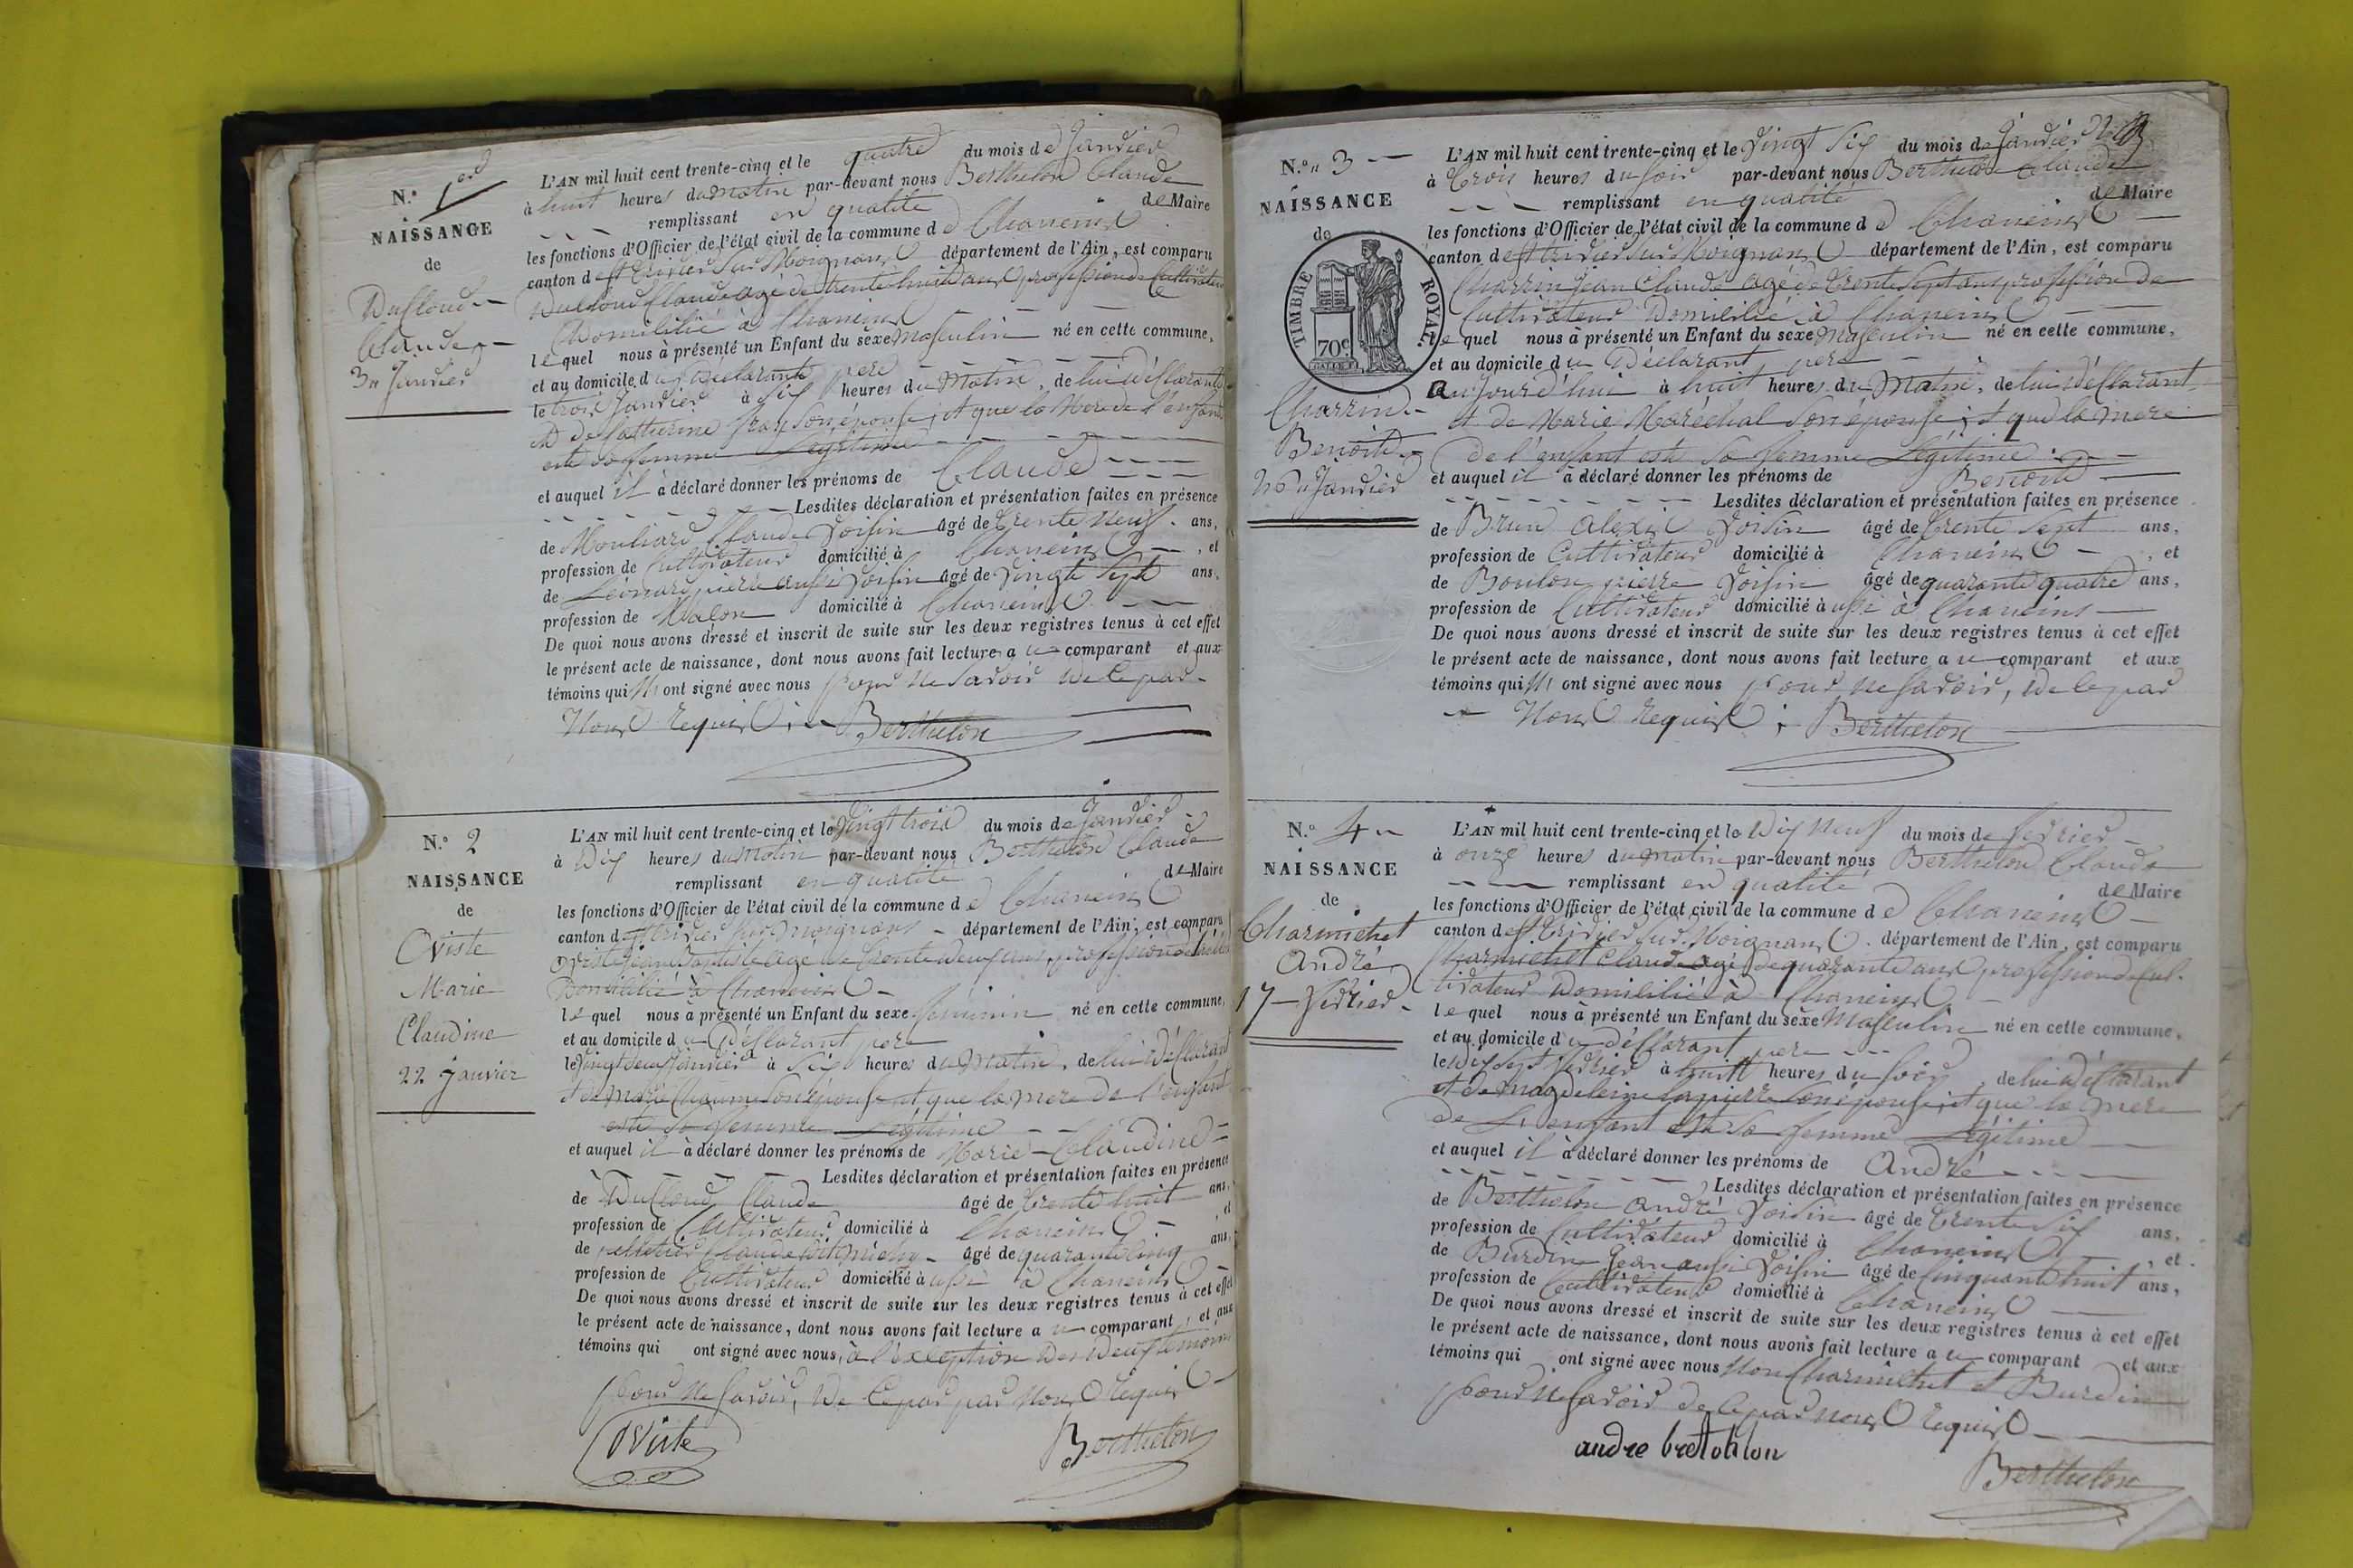 N.° 1er
NAISSANCE
de
Ducloud
Claude
3 Janvier
L'AN mil huit cent trente-cinq et le quatre du mois de Janvier
à huit heures du matin par-devant nous Berthelon Claude
remplissant en qualité de Maire
les fonctions d'Officier de l'état civil de la commune de Chaneins
canton de St Trivier Sur Moignans département de l'Ain, est comparu
Ducloud Claude agé de trente huit ans profession de Cultivateur
Domicilié à Chaneins
lequel nous à présenté un Enfant du sexe Masculin né en cette commune,
et au domicile du Déclarant pere
le trois Janvier à Six heures du Matin, de lui Déclarant
et de Catherine son épouse, et que la Mere de l'enfant
est sa femme Légitime
et auquel il à déclaré donner les prénoms de Claude
Lesdites déclaration et présentation faites en présence
de Claude Voisin âgé de trente Neuf ans,
profession de Cultivateur domicilié à Chaneins, et
de Léonard pierre aussi Voisin âgé de Vingt Sept ans,
profession de Maçon domicilié à Chaneins
De quoi nous avons dressé et inscrit de suite sur les deux registres tenus à cet effet
le présent acte de naissance, dont nous avons fait lecture au comparant et aux
témoins qui N'ont signé avec nous pour Ne Savoir, de ce par
Nous Requis. Berthelon
N.° 2
NAISSANCE
de
Oviste
Marie
Claudine
22 Janvier
L'AN mil huit cent trente-cinq et le Vingt trois du mois de Janvier
à Dix heures du Matin par-devant nous Berthelon Claude
remplissant en qualité de Maire
les fonctions d'Officier de l'état civil de la commune de Chaneins
canton de St Trivier Sur Moignans département de l'Ain, est comparu
Oviste Jean Baptiste agé de trente ans, profession de
Domicilié à Chaneins
lequel nous à présenté un Enfant du sexe féminin né en cette commune,
et au domicile du Déclarant pere
le Vingt deux Janvier à Six heures du Matin, de lui Déclarant
et de Marie Chaume Son épouse et que la mere de l'enfant
est Sa femme Légitime
et auquel il à déclaré donner les prénoms de Marie-Claudine
Lesdites déclaration et présentation faites en présence
de Ducloud Claude âgé de trente huit ans,
profession de Cultivateur domicilié à Chaneins et
de pelletier Claude âgé de quarante cinq ans,
profession de Cultivateur domicilié à Chaneins
De quoi nous avons dressé et inscrit de suite sur les deux registres tenus à cet effet
le présent acte de naissance, dont nous avons fait lecture au comparant, et aux
témoins qui ont signé avec nous, à l'exception des deux témoins
pour Ne Savoir, de ce par Nous Requis
Oviste Berthelon
N.° 3
NAISSANCE
de
TIMBRE ROYAL.
70c
Charrin
Benoit
26 Janvier
L'AN mil huit cent trente-cinq et le Vingt Six du mois de Janvier
à trois heures du Soir par-devant nous Berthelon Claude
remplissant en qualité de Maire
les fonctions d'Officier de l'état civil de la commune de Chaneins
canton de St Trivier Sur Moignans département de l'Ain, est comparu
Charrin Jean Claude agé de trente Sept ans profession de
Cultivateur Domicilié à Chaneins
lequel nous à présenté un Enfant du sexe Masculin né en cette commune,
et au domicile du Déclarant pere
aujourd'hui à huit heures du Matin, de lui Déclarant
et de Marie Maréchal Son épouse; et que la mere
de l'enfant est Sa femme Légitime
et auquel il à déclaré donner les prénoms de Benoit
Lesdites déclaration et présentation faites en présence
de Brun Alexis Voisin âgé de trente Sept ans,
profession de Cultivateur domicilié à Chaneins, et
de Boulon pierre Voisin âgé de quarante quatre ans,
profession de Cultivateur domicilié à Chaneins
De quoi nous avons dressé et inscrit de suite sur les deux registres tenus à cet effet
le présent acte de naissance, dont nous avons fait lecture au comparant et aux
témoins qui N'ont signé avec nous pour Ne Savoir, de ce par
Nous Requis; Berthelon
N.° 4
NAISSANCE
de
Charmichet
André
17 Fevrier
L'AN mil huit cent trente-cinq et le Dix Neuf du mois de Fevrier
à onze heures du Matin par-devant nous Berthelon Claude
remplissant en qualité de Maire
les fonctions d'Officier de l'état civil de la commune de Chaneins
canton de St Trivier Sur Moignans département de l'Ain, est comparu
Charmichet Claude agé de quarante ans profession de Cul-
tivateur Domicilié à Chaneins
lequel nous à présenté un Enfant du sexe Masculin né en cette commune,
et au domicile du déclarant pere
le Dix Sept Fevrier à huit heures du Soir, de lui Déclarant
et de Magdeleine lapierre Son épouse; et que la Mere
de L'enfant est Sa femme Légitime
et auquel il à déclaré donner les prénoms de André
Lesdites déclaration et présentation faites en présence
de Berthelon André Voisin âgé de trente Six ans,
profession de Cultivateur domicilié à Chaneins, et
de Burdin Jean aussi Voisin âgé de Cinquante huit ans,
profession de Cultivateur domicilié à Chaneins
De quoi nous avons dressé et inscrit de suite sur les deux registres tenus à cet effet
le présent acte de naissance, dont nous avons fait lecture au comparant et aux
témoins qui ont signé avec nous Non Charmichet et Burdin
pour Ne Savoir de ce par Nous Requis
andre bretohlon
Berthelon